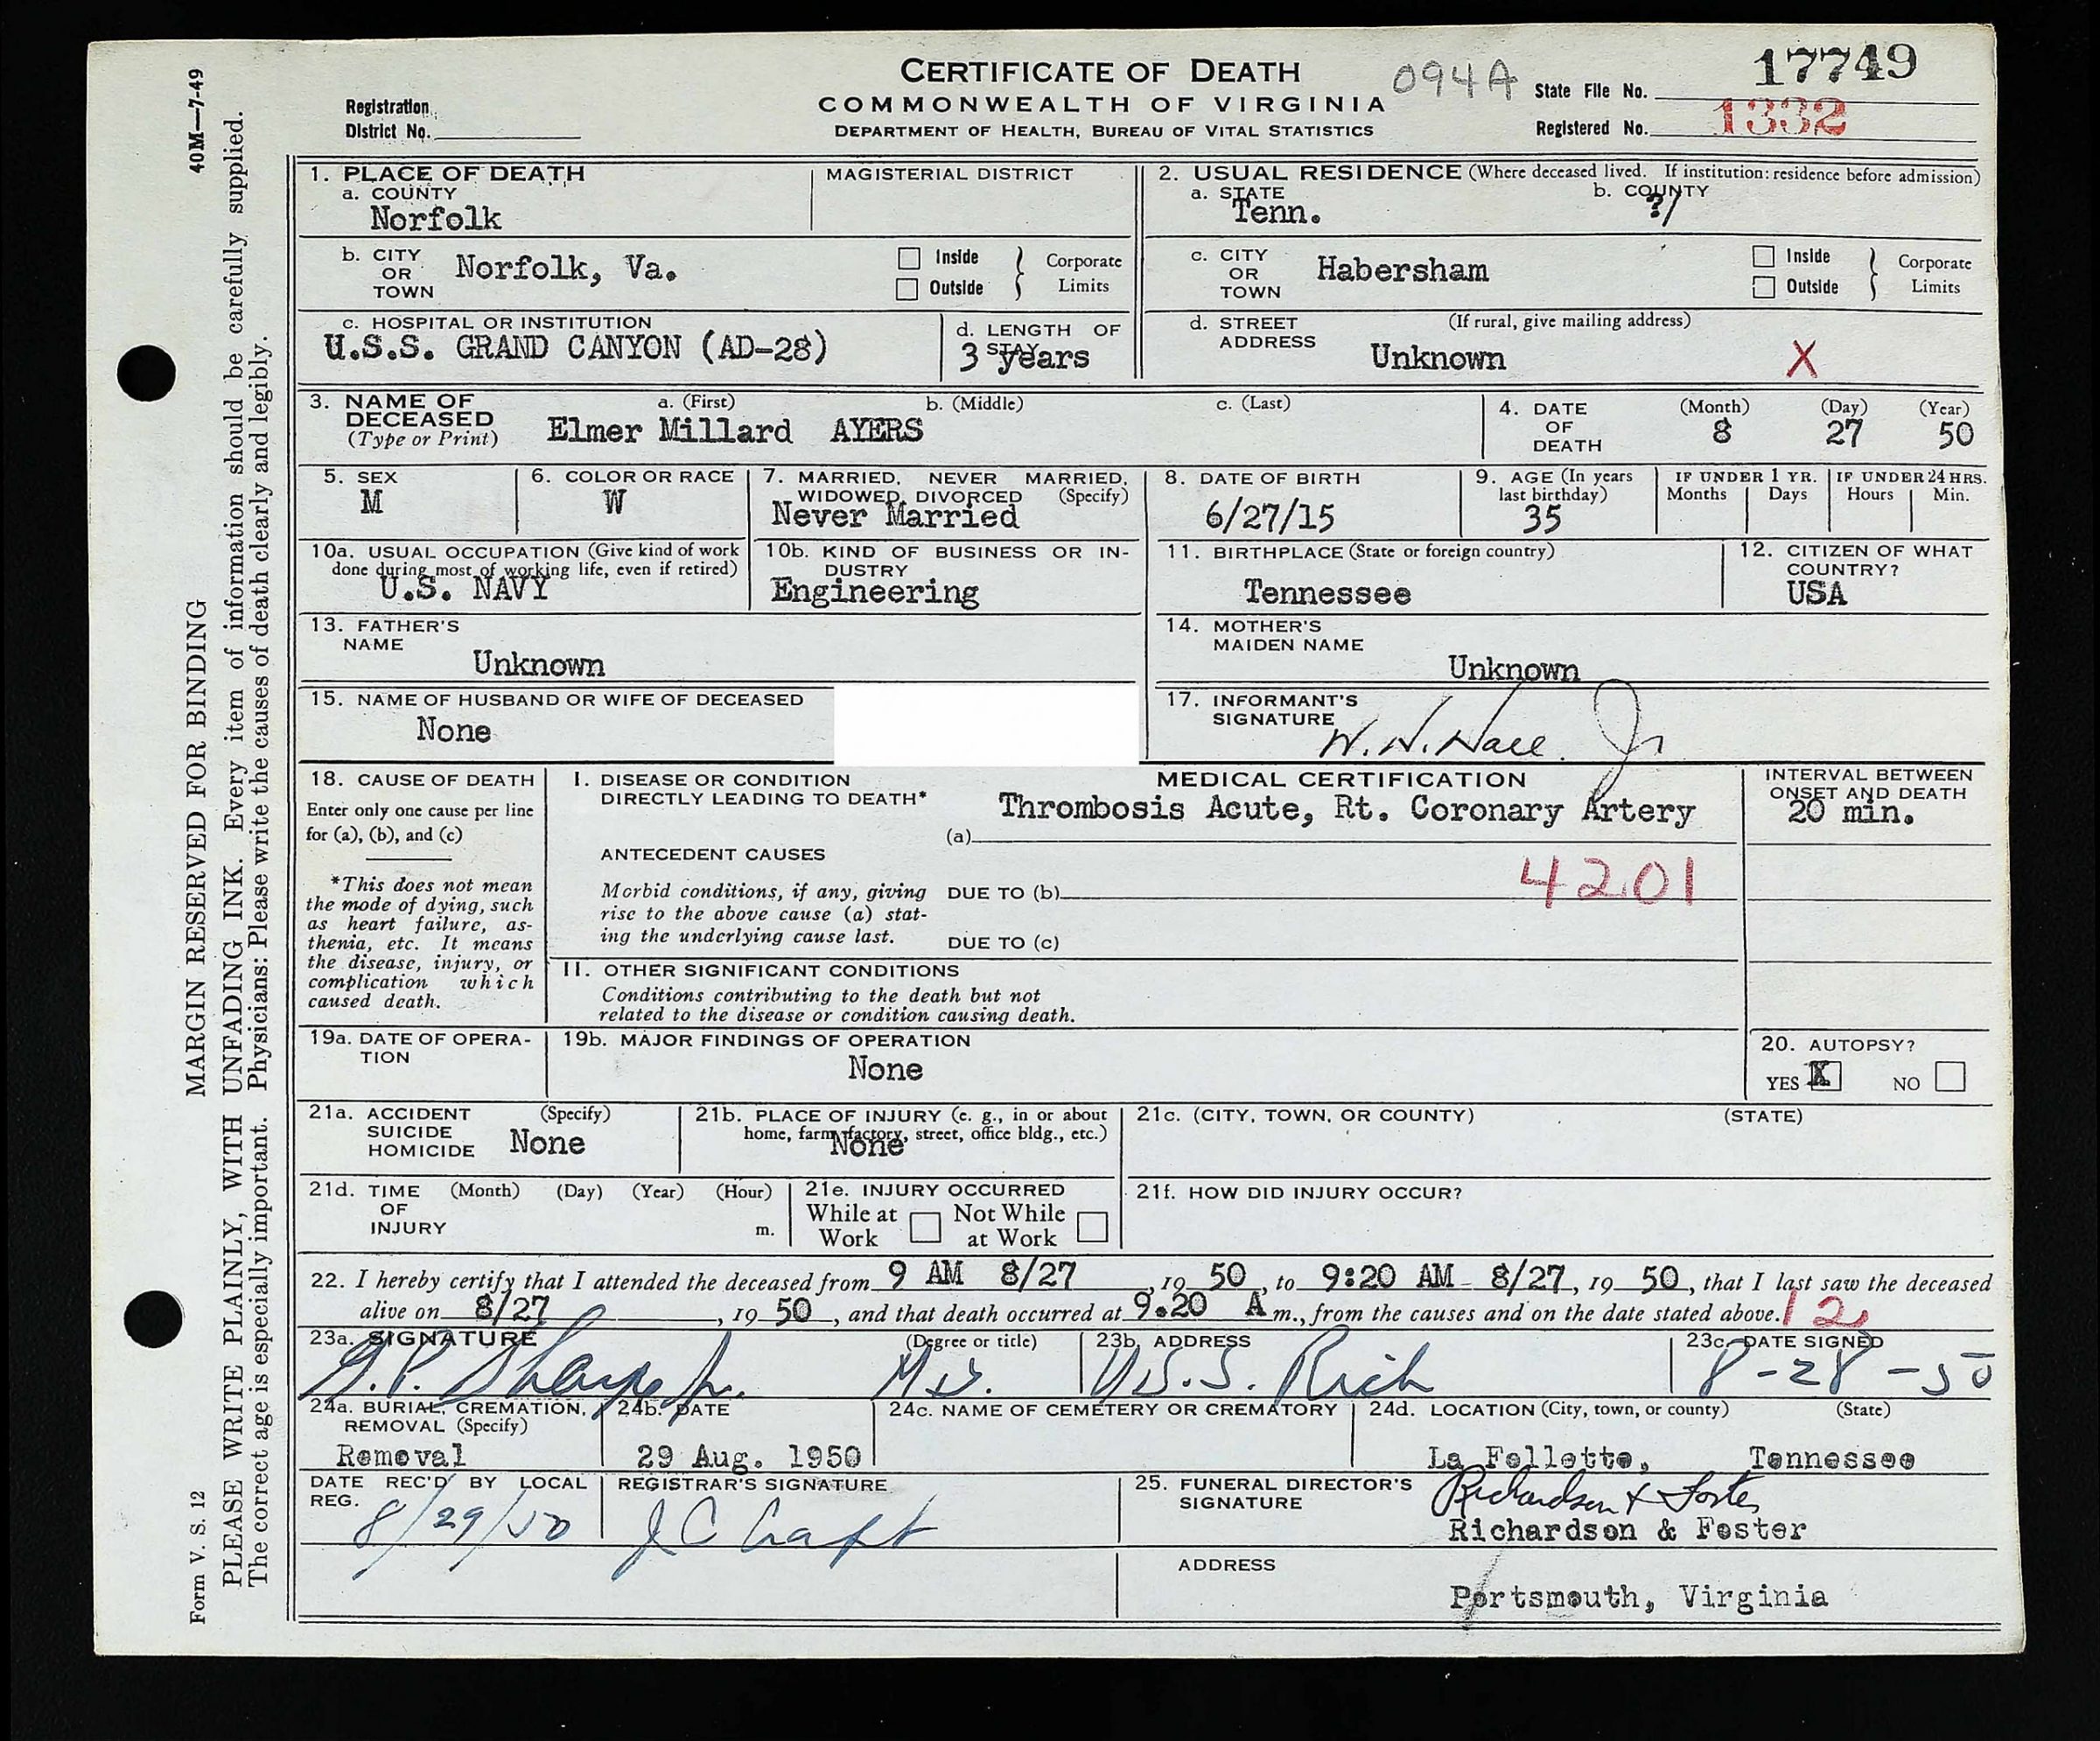 CERTIFICATE OF DEATH
COMMONWEALTH OF VIRGINIA
DEPARTMENT OF HEALTH, BUREAU OF VITAL STATISTICS
094A
State File No. 17749
Registered No. 1332
Registration
District No.
40M—7-49
MARGIN RESERVED FOR BINDING
PLEASE WRITE PLAINLY, WITH UNFADING INK. Every item of information should be carefully supplied.
The correct age is especially important. Physicians: Please write the causes of death clearly and legibly.
Form V. S. 12
1. PLACE OF DEATH
a. COUNTY
Norfolk
MAGISTERIAL DISTRICT
2. USUAL RESIDENCE (Where deceased lived. If institution: residence before admission)
a. STATE
Tenn.
b. COUNTY
?
b. CITY OR TOWN Norfolk, Va.
Inside
Outside
Corporate Limits
c. CITY OR TOWN Habersham
Inside
Outside
Corporate Limits
c. HOSPITAL OR INSTITUTION
U.S.S. GRAND CANYON (AD-28)
d. LENGTH OF STAY
3 years
d. STREET ADDRESS (If rural, give mailing address)
Unknown X
3. NAME OF DECEASED
(Type or Print)
a. (First) b. (Middle) c. (Last)
Elmer Millard AYERS
4. DATE OF DEATH
(Month) (Day) (Year)
8 27 50
5. SEX
M
6. COLOR OR RACE
W
7. MARRIED, NEVER MARRIED, WIDOWED, DIVORCED (Specify)
Never Married
8. DATE OF BIRTH
6/27/15
9. AGE (In years last birthday)
35
IF UNDER 1 YR.
Months Days
IF UNDER 24 HRS.
Hours Min.
10a. USUAL OCCUPATION (Give kind of work done during most of working life, even if retired)
U.S. NAVY
10b. KIND OF BUSINESS OR INDUSTRY
Engineering
11. BIRTHPLACE (State or foreign country)
Tennessee
12. CITIZEN OF WHAT COUNTRY?
USA
13. FATHER'S NAME
Unknown
14. MOTHER'S MAIDEN NAME
Unknown
15. NAME OF HUSBAND OR WIFE OF DECEASED
None
17. INFORMANT'S SIGNATURE
Jr
18. CAUSE OF DEATH
Enter only one cause per line for (a), (b), and (c)
*This does not mean the mode of dying, such as heart failure, asthenia, etc. It means the disease, injury, or complication which caused death.
MEDICAL CERTIFICATION
I. DISEASE OR CONDITION DIRECTLY LEADING TO DEATH*
(a) Thrombosis Acute, Rt. Coronary Artery
INTERVAL BETWEEN ONSET AND DEATH
20 min.
ANTECEDENT CAUSES
Morbid conditions, if any, giving rise to the above cause (a) stating the underlying cause last.
DUE TO (b)
4201
DUE TO (c)
II. OTHER SIGNIFICANT CONDITIONS
Conditions contributing to the death but not related to the disease or condition causing death.
19a. DATE OF OPERATION
19b. MAJOR FINDINGS OF OPERATION
None
20. AUTOPSY?
YES X NO
21a. ACCIDENT SUICIDE HOMICIDE (Specify)
None
21b. PLACE OF INJURY (e. g., in or about home, farm, factory, street, office bldg., etc.)
None
21c. (CITY, TOWN, OR COUNTY) (STATE)
21d. TIME OF INJURY (Month) (Day) (Year) (Hour)
m.
21e. INJURY OCCURRED
While at Work Not While at Work
21f. HOW DID INJURY OCCUR?
22. I hereby certify that I attended the deceased from 9 AM 8/27, 19 50, to 9:20 AM 8/27, 19 50, that I last saw the deceased
alive on 8/27, 19 50, and that death occurred at 9.20 A m., from the causes and on the date stated above. 12
23a. SIGNATURE (Degree or title)
G.P. Sharpe Jr. M.D.
23b. ADDRESS
U.S.S. Rich
23c. DATE SIGNED
8-28-50
24a. BURIAL, CREMATION, REMOVAL (Specify)
Removal
24b. DATE
29 Aug. 1950
24c. NAME OF CEMETERY OR CREMATORY
24d. LOCATION (City, town, or county) (State)
La Follette, Tennessee
DATE REC'D BY LOCAL REG.
8/29/50
REGISTRAR'S SIGNATURE
25. FUNERAL DIRECTOR'S SIGNATURE
Richardson & Foster
Richardson & Foster
ADDRESS
Portsmouth, Virginia